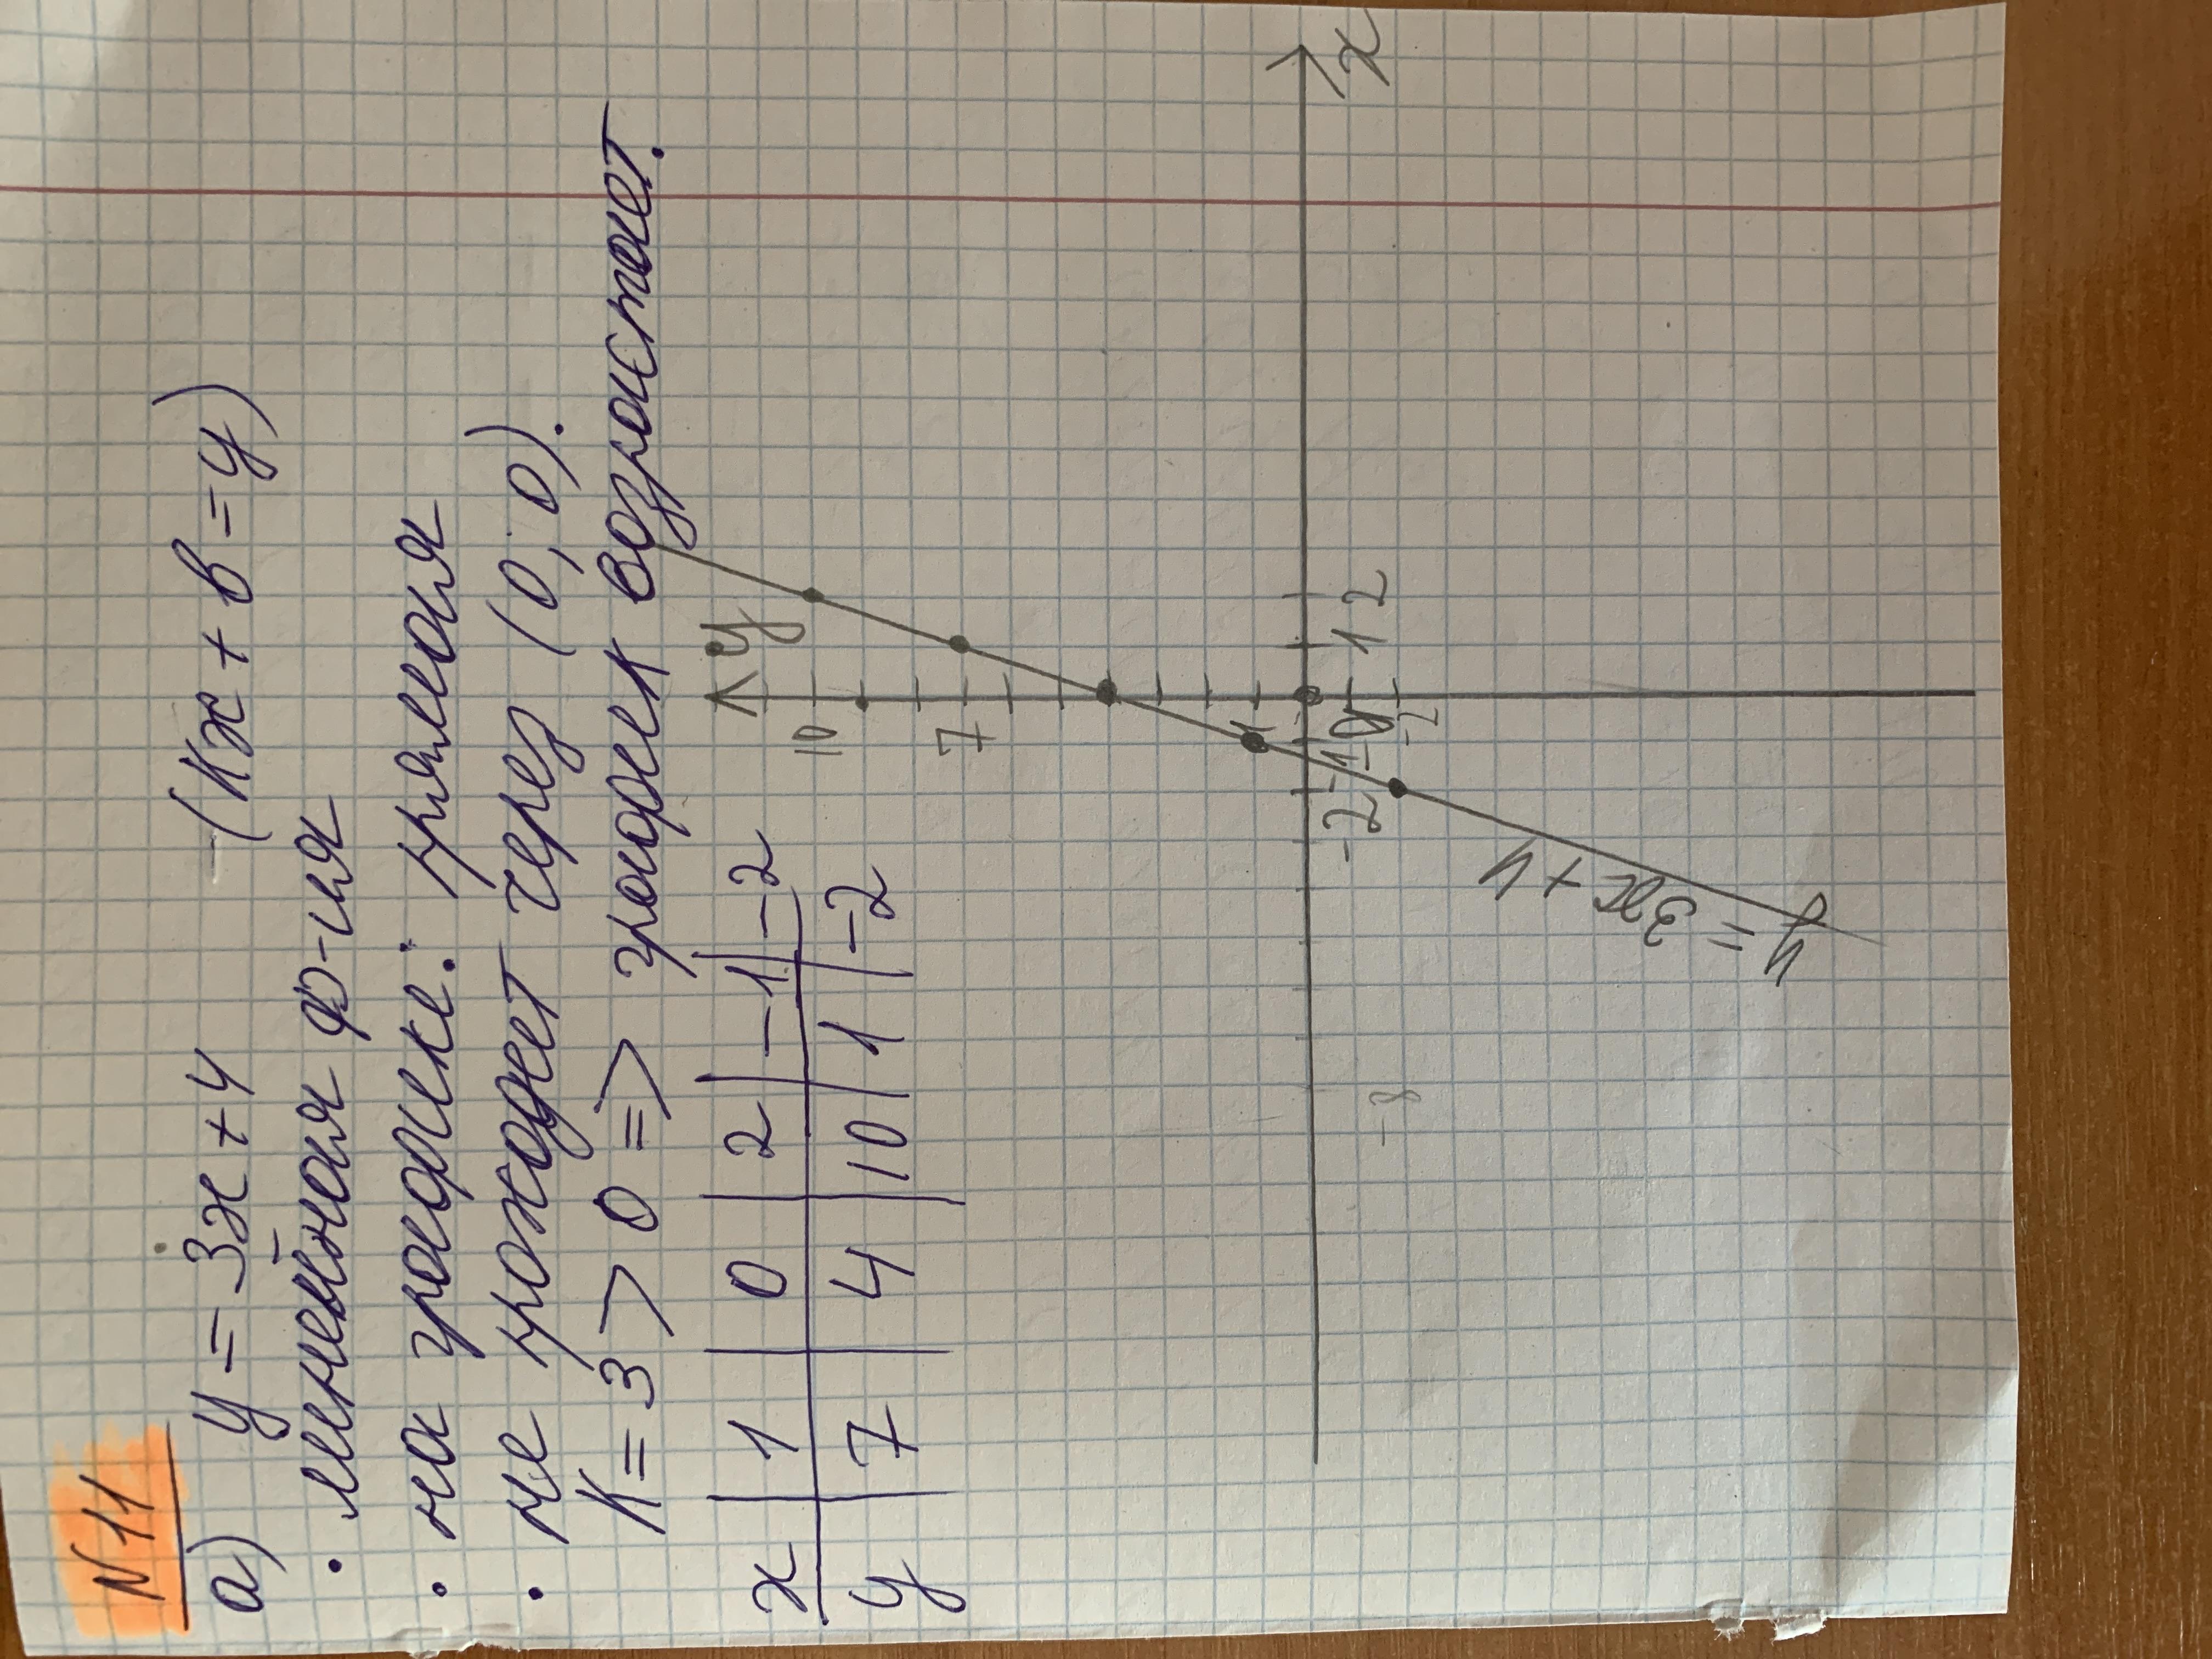 N 11
а) y = 3x + 4 (Kx + b = y)
• линейная ф-ия
• на графике: прямая
• не проходит через (0; 0).
K = 3 > 0 => график возрастает.
x | 1 | 0 | 2 | -1 | -2
y | 7 | 4 | 10 | 1 | -2
y
10
7
1
-2 -1 0 1 2 x
-2
-8
y = 3x + 4